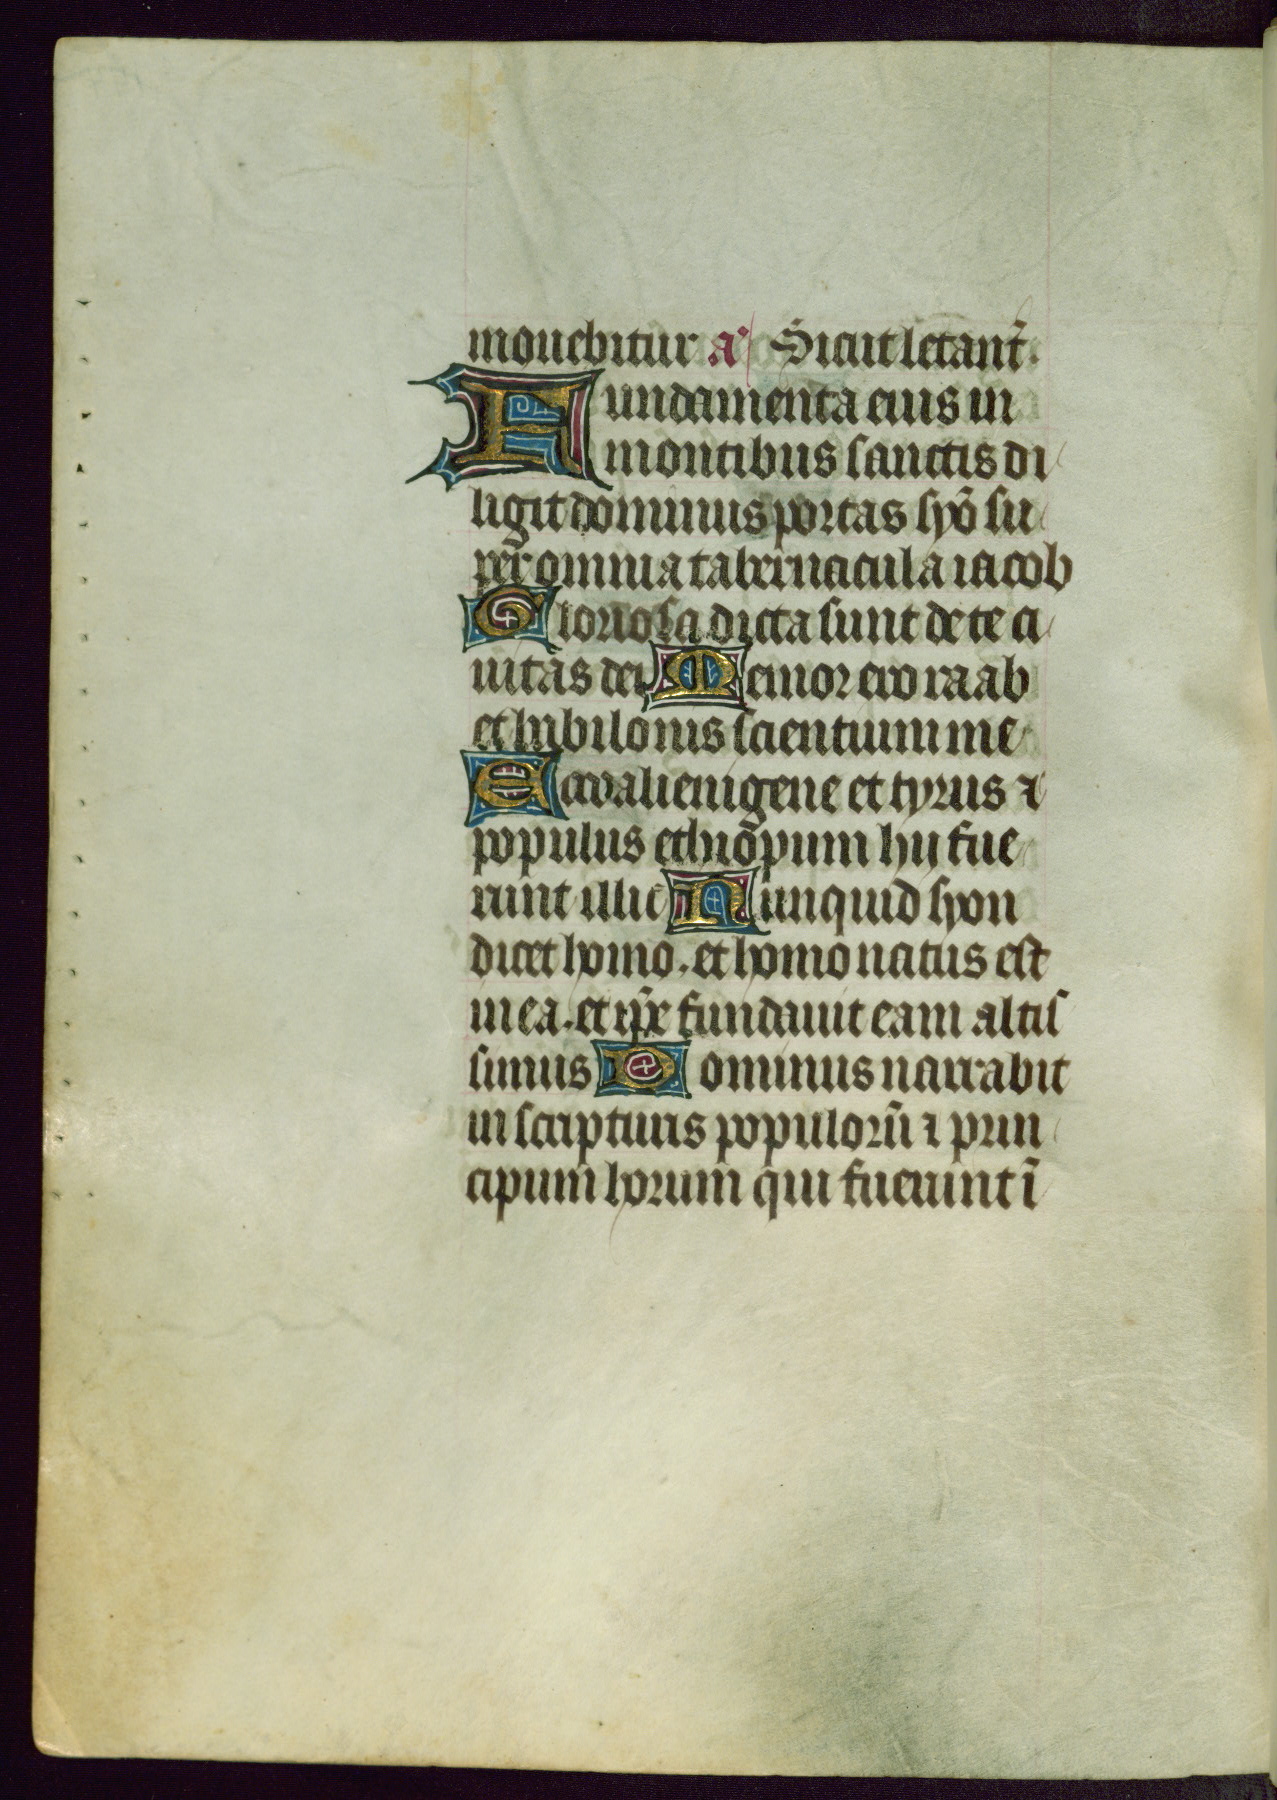 mouebitur a Sicut letant̄
Fundamenta eius in
montibus sanctis di
ligit dominus portas syō su
per omnia tabernacula iacob
Gloriosa dicta sunt de te ci
uitas dei Memor ero raab
et babilonis scientium me
Ecce alienigene et tyrus ⁊
populus ethiopum hij fue
runt illic Nunquid syon
dicet homo. et homo natus est
in ea. et ip̄e fundauit eam altis
simus Dominus narrabit
in scripturis populorū ⁊ prin
cipum horum qui fuerunt ī